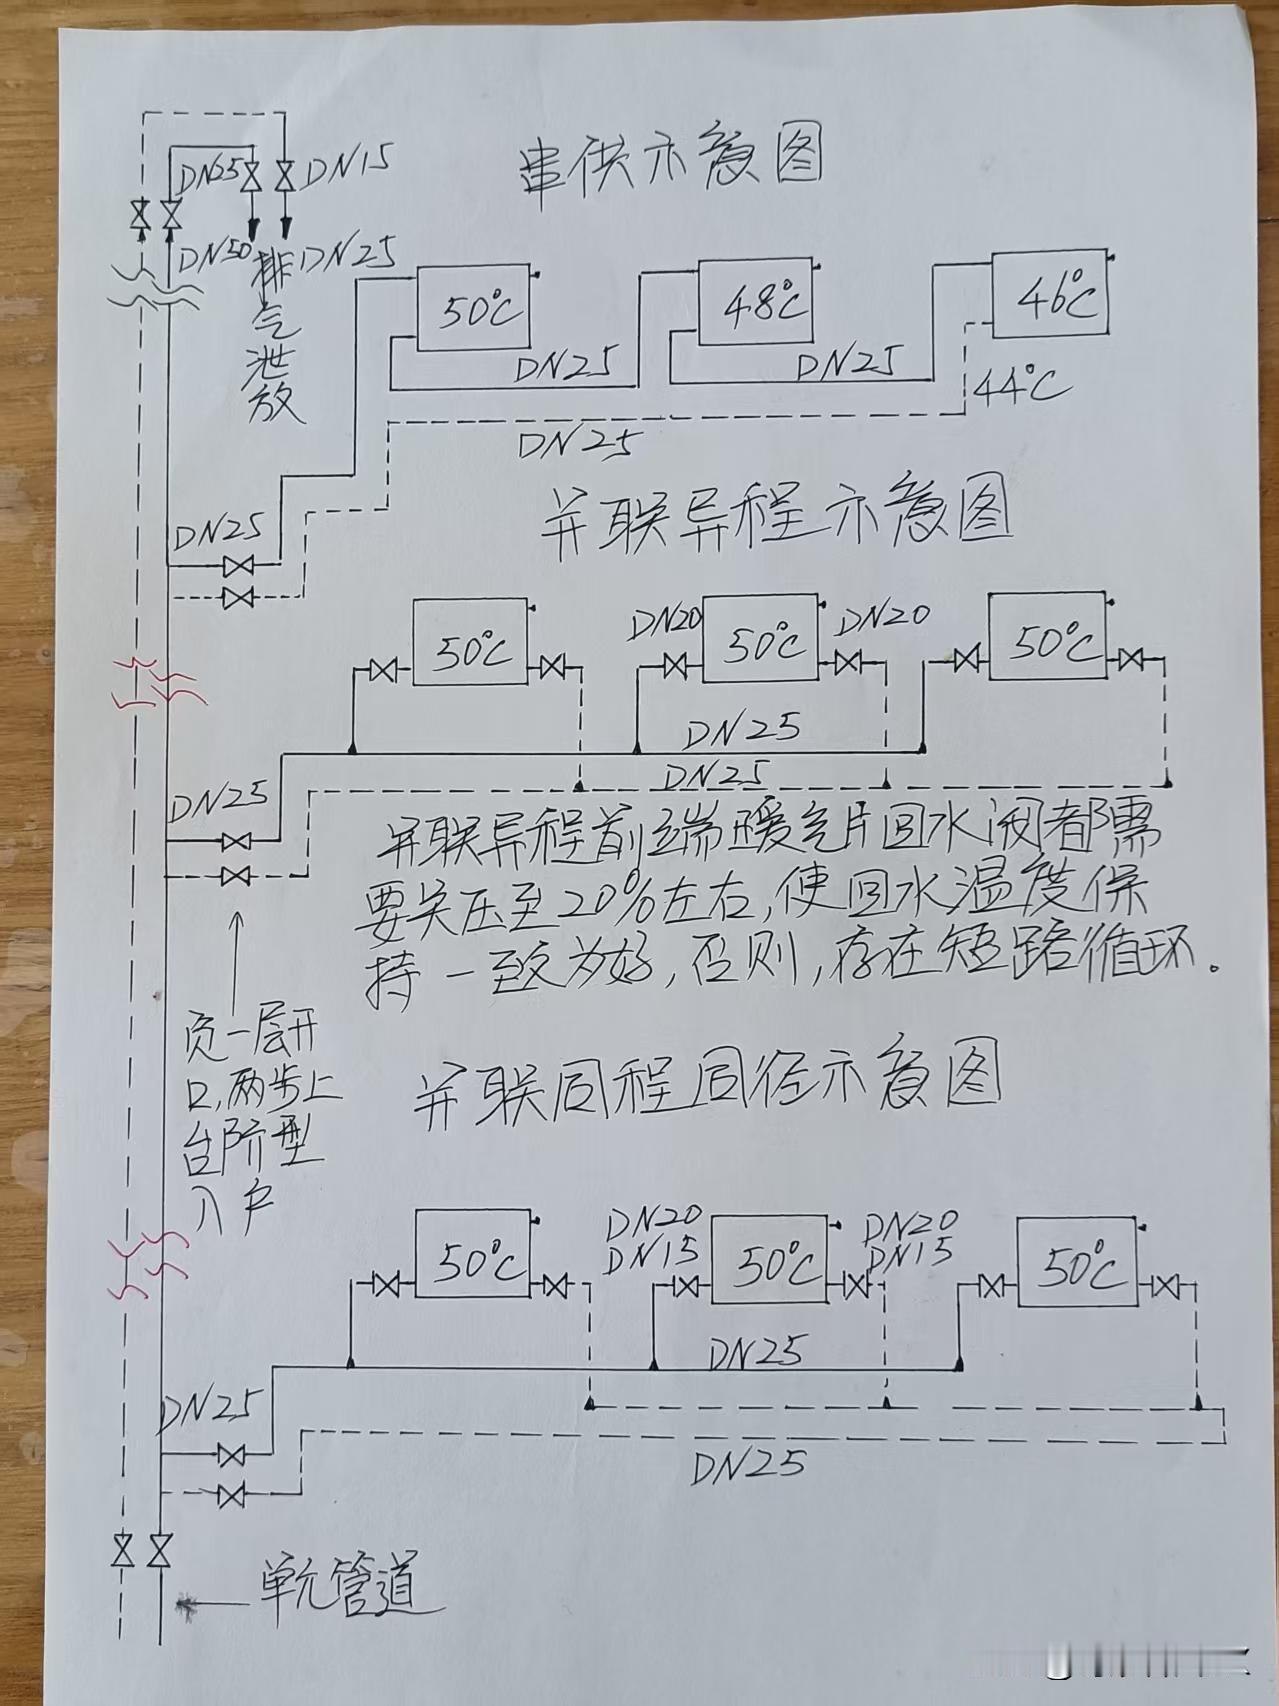 串供示意图
DN25
DN15
DN50
排气泄放
DN25
50℃
48℃
46℃
DN25
DN25
44℃
DN25
DN25
并联异程示意图
50℃
DN20
50℃
DN20
50℃
DN25
DN25
DN25
并联异程前端暖气片回水阀都需
要关压至20%左右,使回水温度保
持一致为好,否则,存在短路循环。
负一层开
口,两步上
台阶型
入户
并联同程同径示意图
50℃
DN20
DN15
50℃
DN20
DN15
50℃
DN25
DN25
DN25
单元管道